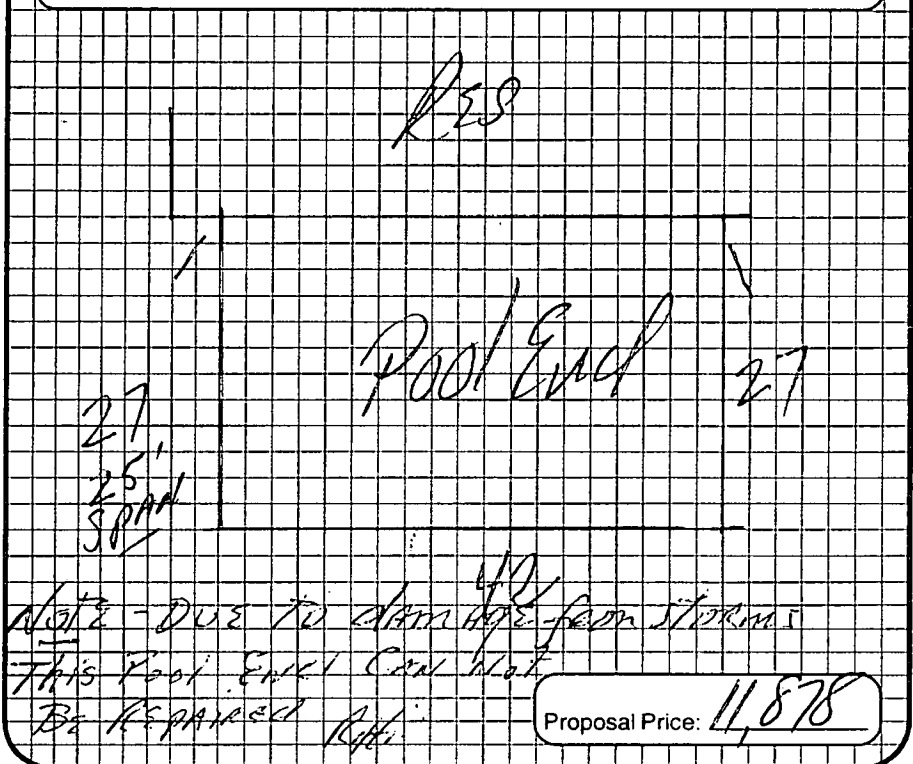 RES
Pool Encl
27
27
25'
SPAN
42
NOTE - DUE TO damage from STORMS
This Pool Encl CAN Not
BE REPAIRED
Proposal Price: 11,878